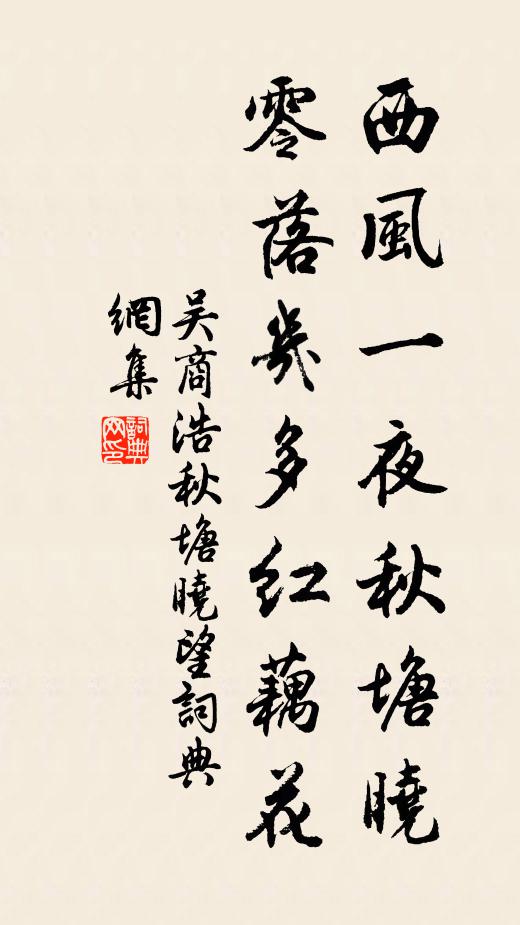 西風一夜秋塘曉
零落幾多紅藕花
吴商浩秋塘曉望詞典
網集
詞典
网印